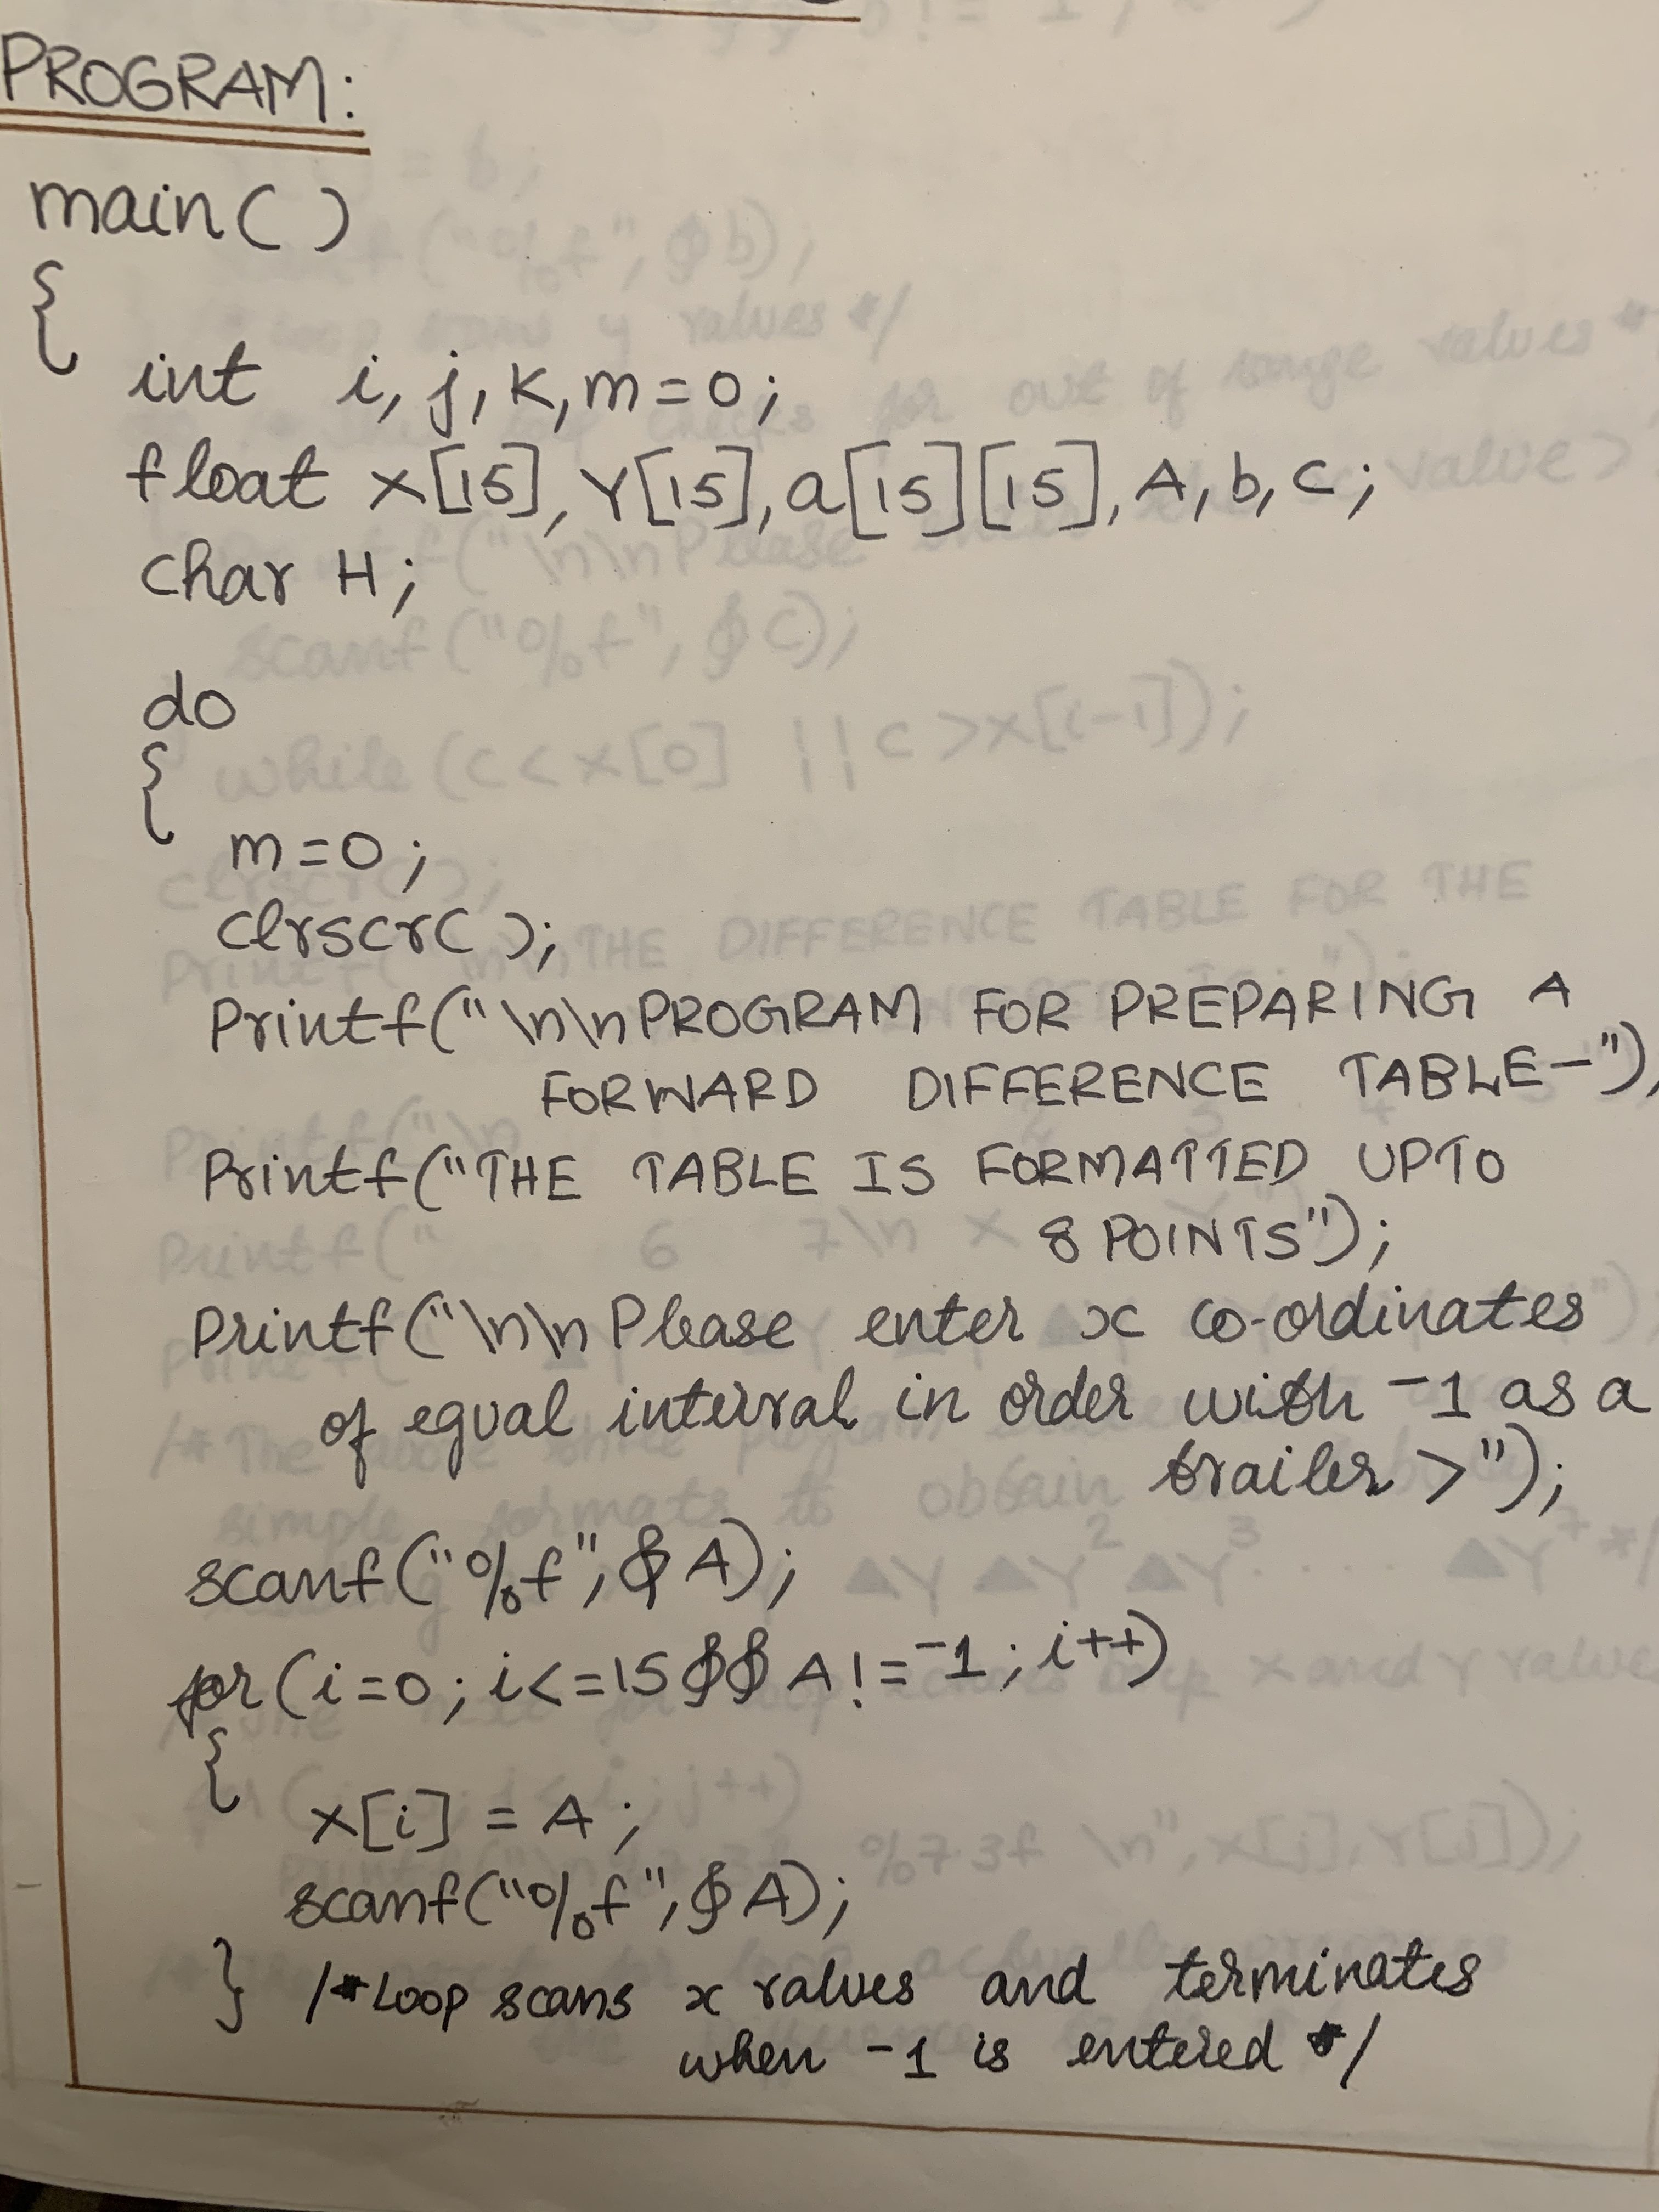 PROGRAM:
main()
{
int i, j, k, m=0;
float x[15], Y[15], a[15][15], A, b, c;
char H;
do
{
m=0;
clrscr();
Printf("\n\nPROGRAM FOR PREPARING A
FORWARD DIFFERENCE TABLE-");
Printf("THE TABLE IS FORMATTED UPTO
8 POINTS");
Printf("\n\nPlease enter x co-ordinates
of equal interval in order with -1 as a
trailer >");
scanf("%f",&A);
for(i=0; i<=15&&A!=-1; i++)
{
x[i] = A;
scanf("%f",&A);
} /*Loop scans x values and terminates
when -1 is entered */